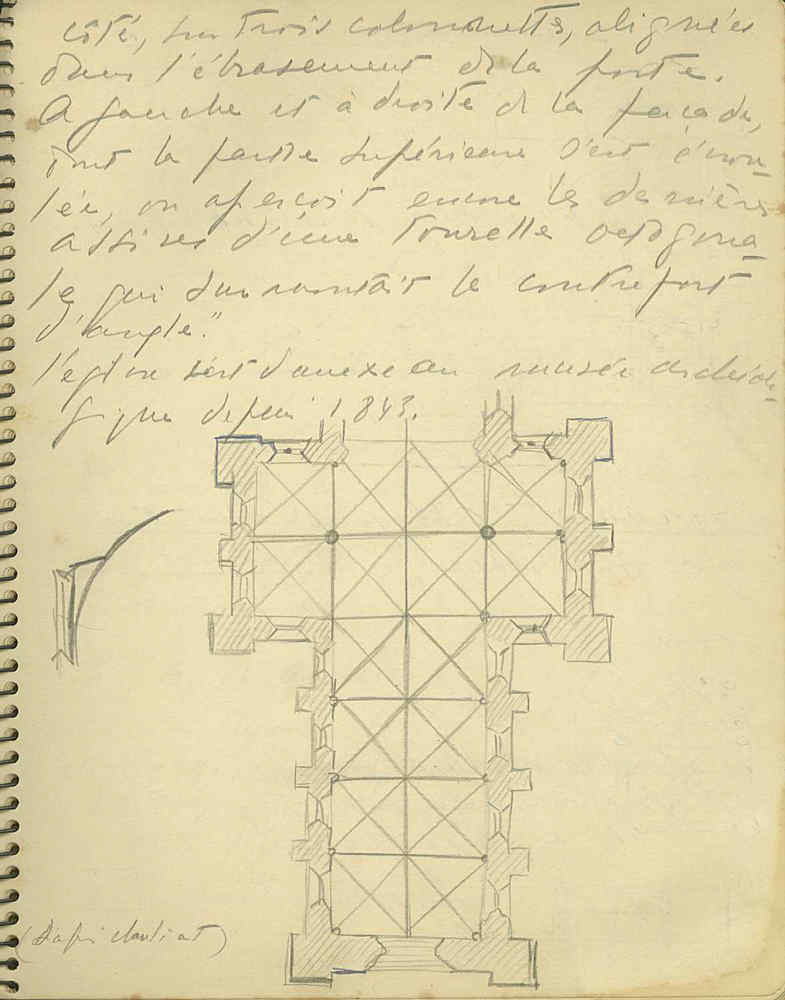 côté, sur trois colonnettes, alignées
dans l'ébrasement de la porte.
A gauche et à droite de la façade,
dont la partie supérieure s'est écrou-
lée, on aperçoit encore les dernières
assises d'une tourelle octogona
le qui surmontait le contrefort
d'angle."
l'église sert d'annexe au musée archéolo-
gique depuis 1843.
(D'après